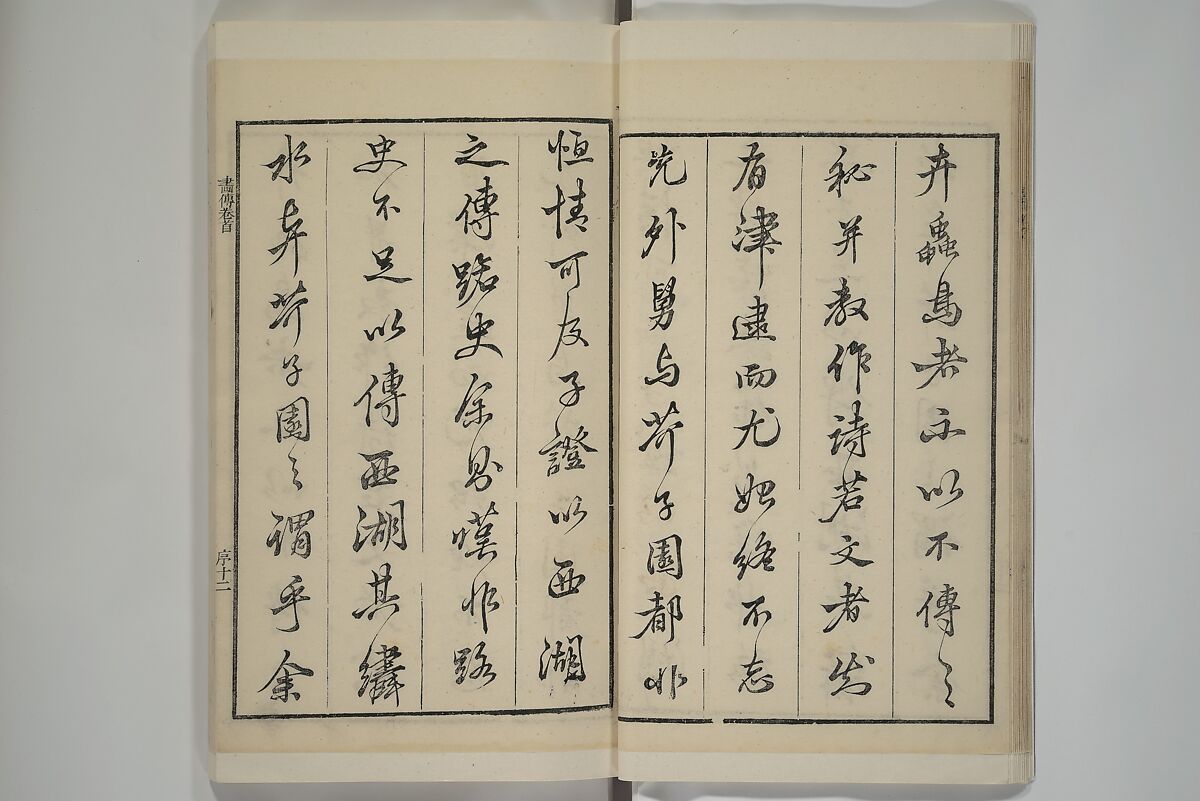 卉蟲鳥者示以不傳之
秘并教作詩若文者
有津逮而尤始終不忘
先外舅与芥子園都非
恒情可及予證以西湖
之傳路史余則嘆非路
史不足以傳西湖其繡
水芥子園之謂乎余
畫傳卷首
序十二